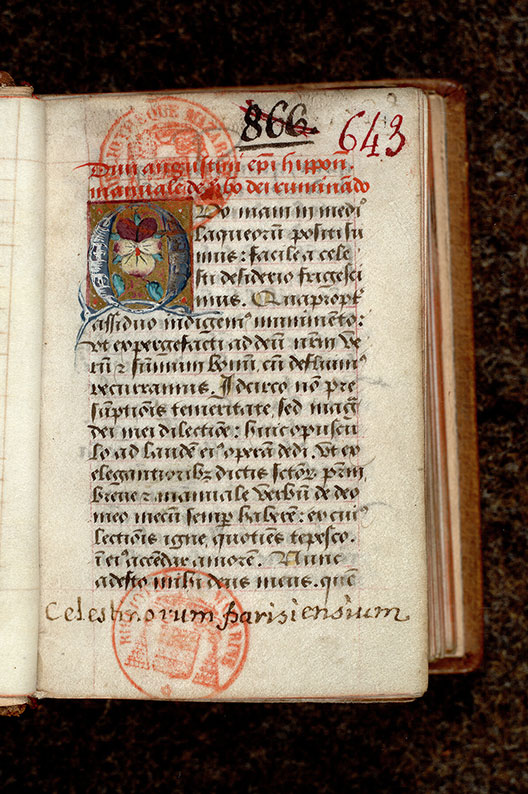 866.
643
Diui augustini epi hippon̄.
manuale de v̄bo dei ruminādo
Qvoniam in medi
laqueorū positi su
mus: facile a cele
sti desiderio frigesci
mus. Quaꝓpt
assiduo indigemꝰ munimēto:
vt expergefacti ad deū nrm̄ ve
rū ⁊ summū bonū, cū defluimꝰ
recurramus. Idcirco nō pre
sūptionis temeritate, sed maḡ
dei mei dilectiōe: hūc opuscu
lo ad laudē eiꝰ operā dedi. vt ex
elegantioribꝫ dictis sctōꝝ pr̄m
breue ⁊ manuale verbū de deo
meo mecū semꝑ haberē: ex cuiꝰ
lectionis igne, quotiēs tepesco.
ī eiꝰ accēdar amorē. Nunc
adesto mihi deus meus. quē
Celestinorum parisiensium